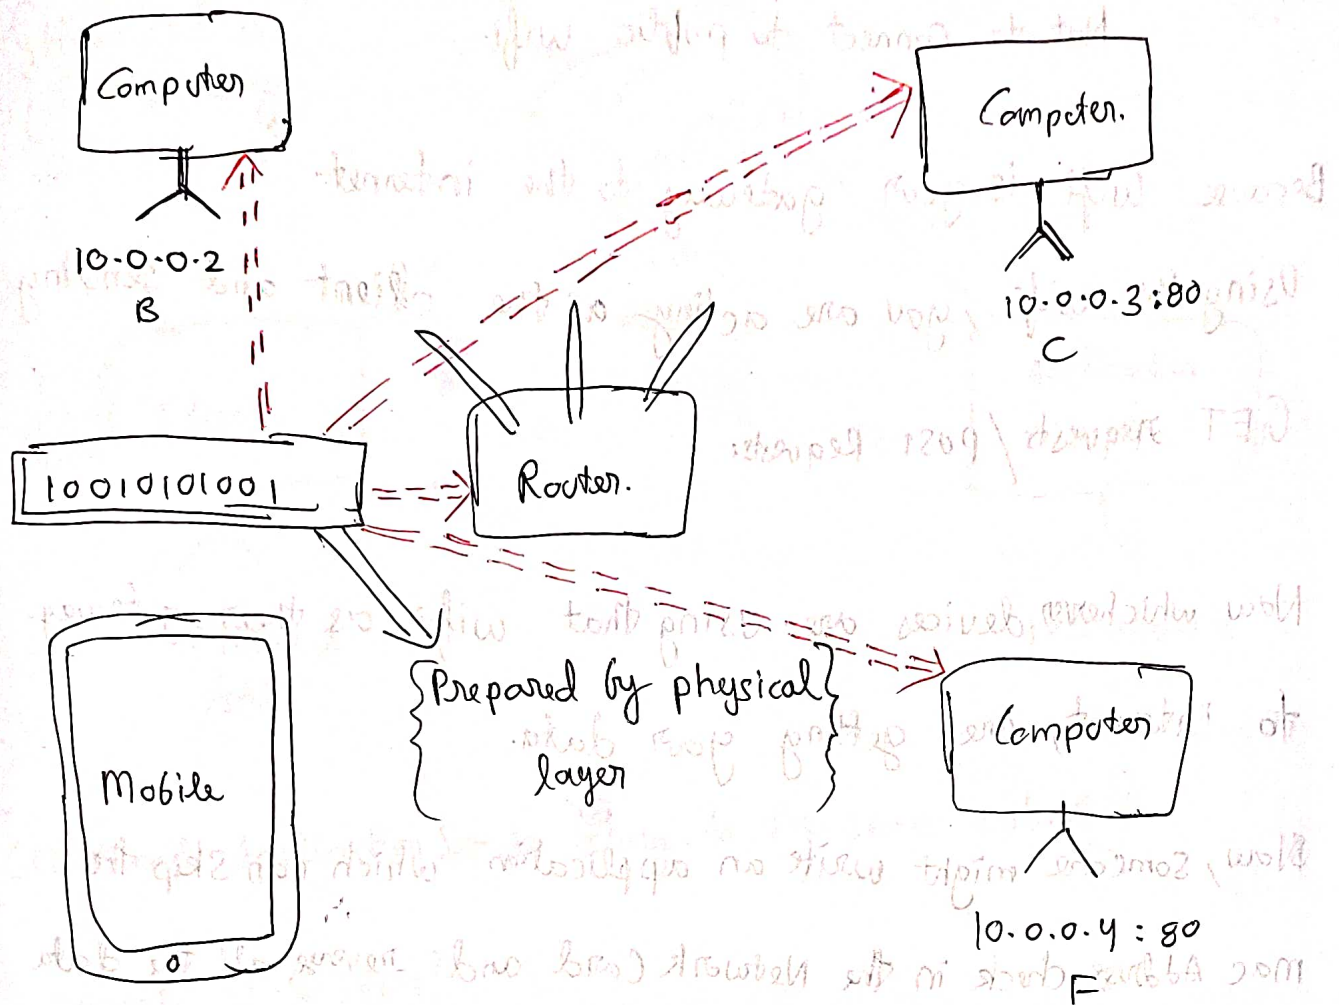 Computer
10.0.0.2
B
Computer.
10.0.0.3:80
C
Router.
10010101001
Prepared by physical
layer
Mobile
Computer
10.0.0.4:80
F